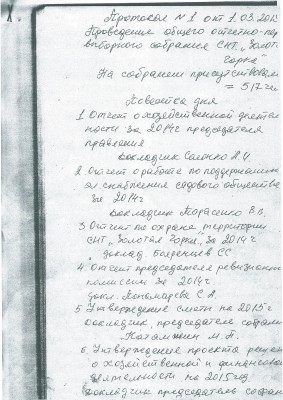 Протокол N 1 от 1. 03. 2015
Проведение общего отчетно-пер
выборного собрания СНТ „Золот
Горка"
На собрании присутствовали
= 517 чл
Повестка дня
1. Отчет о хозяйственной деятель
ности за 2014г председателя
правления
докладчик
2. Отчет о работе по поддержанию
эл снабжения садового общества
за 2014г
докладчик Тарасенко В.В.
3. Отчет по охране территории
СНТ „Золотая Горка" за 2014г
доклад СС
4. Отчет председателя ревизионной
комиссии за 2014г
докл. Пономарева С.А.
5 Утверждение сметы на 2015г
докладчик, председатель собрания
М.П.
6. Утверждение проекта решен
о хозяйственной и финансовой
деятельности на 2015 год
докладчик председатель собран